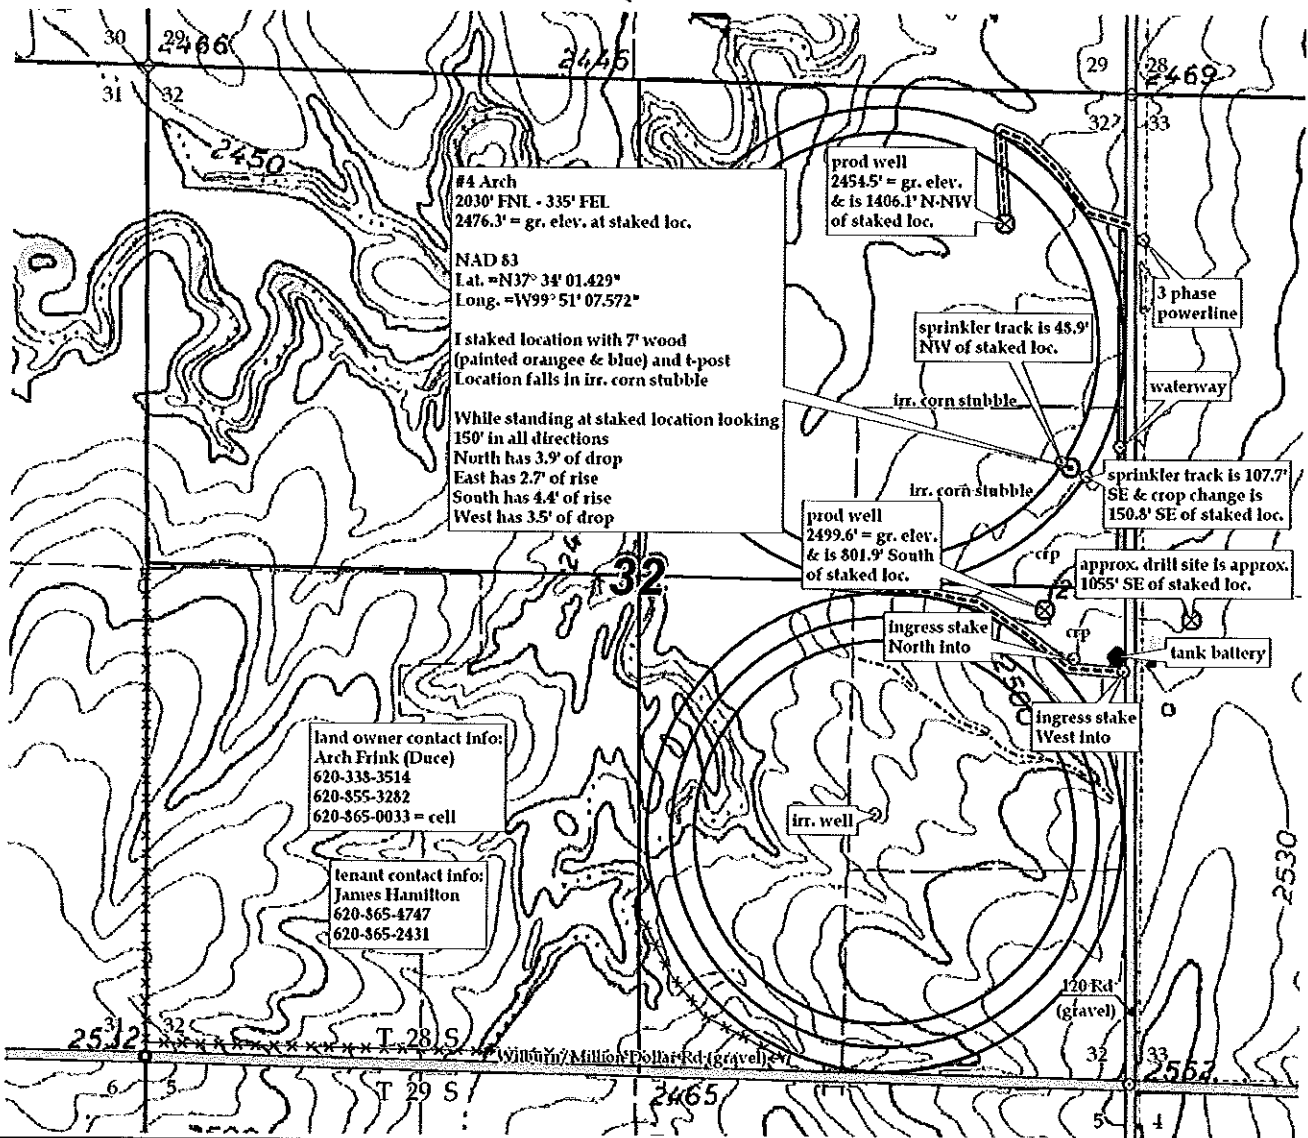 30
29
2466
2446
29
28
2469
31
32
32
33
2450
#4 Arch
2030' FNL - 335' FEL
2476.3' = gr. elev. at staked loc.
NAD 83
Lat. =N37° 34' 01.429"
Long. =W99° 51' 07.572"
I staked location with 7' wood
(painted orangee & blue) and t-post
Location falls in irr. corn stubble
While standing at staked location looking
150' in all directions
North has 3.9' of drop
East has 2.7' of rise
South has 4.4' of rise
West has 3.5' of drop
prod well
2454.5' = gr. elev.
& is 1406.1' N-NW
of staked loc.
3 phase
powerline
sprinkler track is 48.9'
NW of staked loc.
waterway
irr. corn stubble
sprinkler track is 107.7'
SE & crop change is
150.8' SE of staked loc.
irr. corn stubble
prod well
2499.6' = gr. elev.
& is 801.9' South
of staked loc.
crp
approx. drill site is approx.
1055' SE of staked loc.
32
ingress stake
North into
crp
tank battery
ingress stake
West into
land owner contact info:
Arch Frink (Duce)
620-338-3514
620-855-3282
620-865-0033 = cell
irr. well
tenant contact info:
James Hamilton
620-865-4747
620-865-2431
2530
120 Rd
(gravel)
31
32
2532
T 28 S
Wilburn/Million Dollar Rd (gravel)
32
33
2562
6
5
T 29 S
2465
5
4